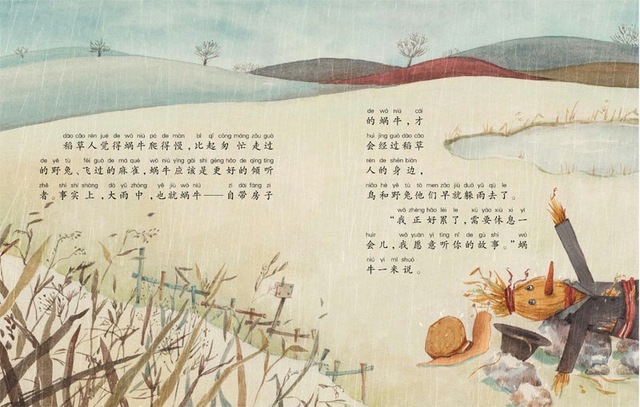 dào cǎo rén jué de wō niú pá de màn bǐ qǐ cōng máng zǒu guò
稻草人觉得蜗牛爬得慢，比起匆忙走过
de yě tù fēi guò de má què wō niú yīng gāi shì gèng hǎo de qīng tīng
的野兔、飞过的麻雀，蜗牛应该是更好的倾听
zhě shì shí shàng dà yǔ zhōng yě jiù wō niú zì dài fáng zi
者。事实上，大雨中，也就蜗牛——自带房子
de wō niú cái
的蜗牛，才
huì jīng guò dào cǎo
会经过稻草
rén de shēn biān
人的身边，
niǎo hé yě tù tā men zǎo jiù duǒ yǔ qù le
鸟和野兔他们早就躲雨去了。
wǒ zhèng hǎo lèi le xū yào xiū xi yí
“我正好累了，需要休息一
huìr wǒ yuàn yì tīng nǐ de gù shi wō
会儿，我愿意听你的故事。”蜗
niú yī mǐ shuō
牛一米说。